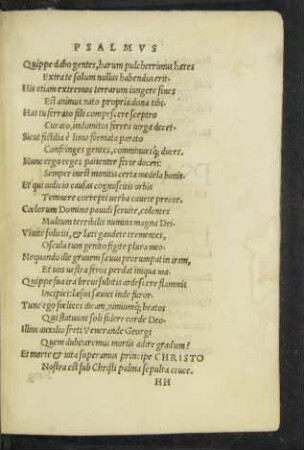 PSALMVS
Quippe dabo gentes, harum pulcherrimus hæres
Extra te solum nullus habendus erit.
His etiam extremos terrarum iungere fines
Est animus nato propria dona tibi.
Has tu ferrato fili compescere sceptro
Curato, indomitos ferrea uirga decet.
Sicut fictilia è limo formata parato
Confringes gentes, comminuesq; duces.
Nunc ergo reges patienter ferre doceri
Semper inest monitis certa medela bonis.
Et qui iudicio causas cognoscitis orbis
Temnere correpti uerba cauete precor.
Cœlorum Domino pauidi seruite, colentes
Multum terribilis numina magna Dei.
Viuite soliciti, & læti gaudete trementes,
Oscula tum genito figite plura meo.
Ne quando ille grauem sæuus prorumpat in iram,
Et uos iustra feros perdat iniqua uia.
Quippe sua ira breui subitis ardescere flammis
Incipiet: læsus sæuit inde furor.
Tunc ego fœlices dicam, nimiumq; beatos
Qui statuunt soli fidere corde Deo.
Illius auxilio freti Venerande Georgi
Quem dubitaremus mortis adire gradum?
Et morte & uita superamus principe CHRISTO
Nostra est sub Christi palma sepulta cruce.
HH